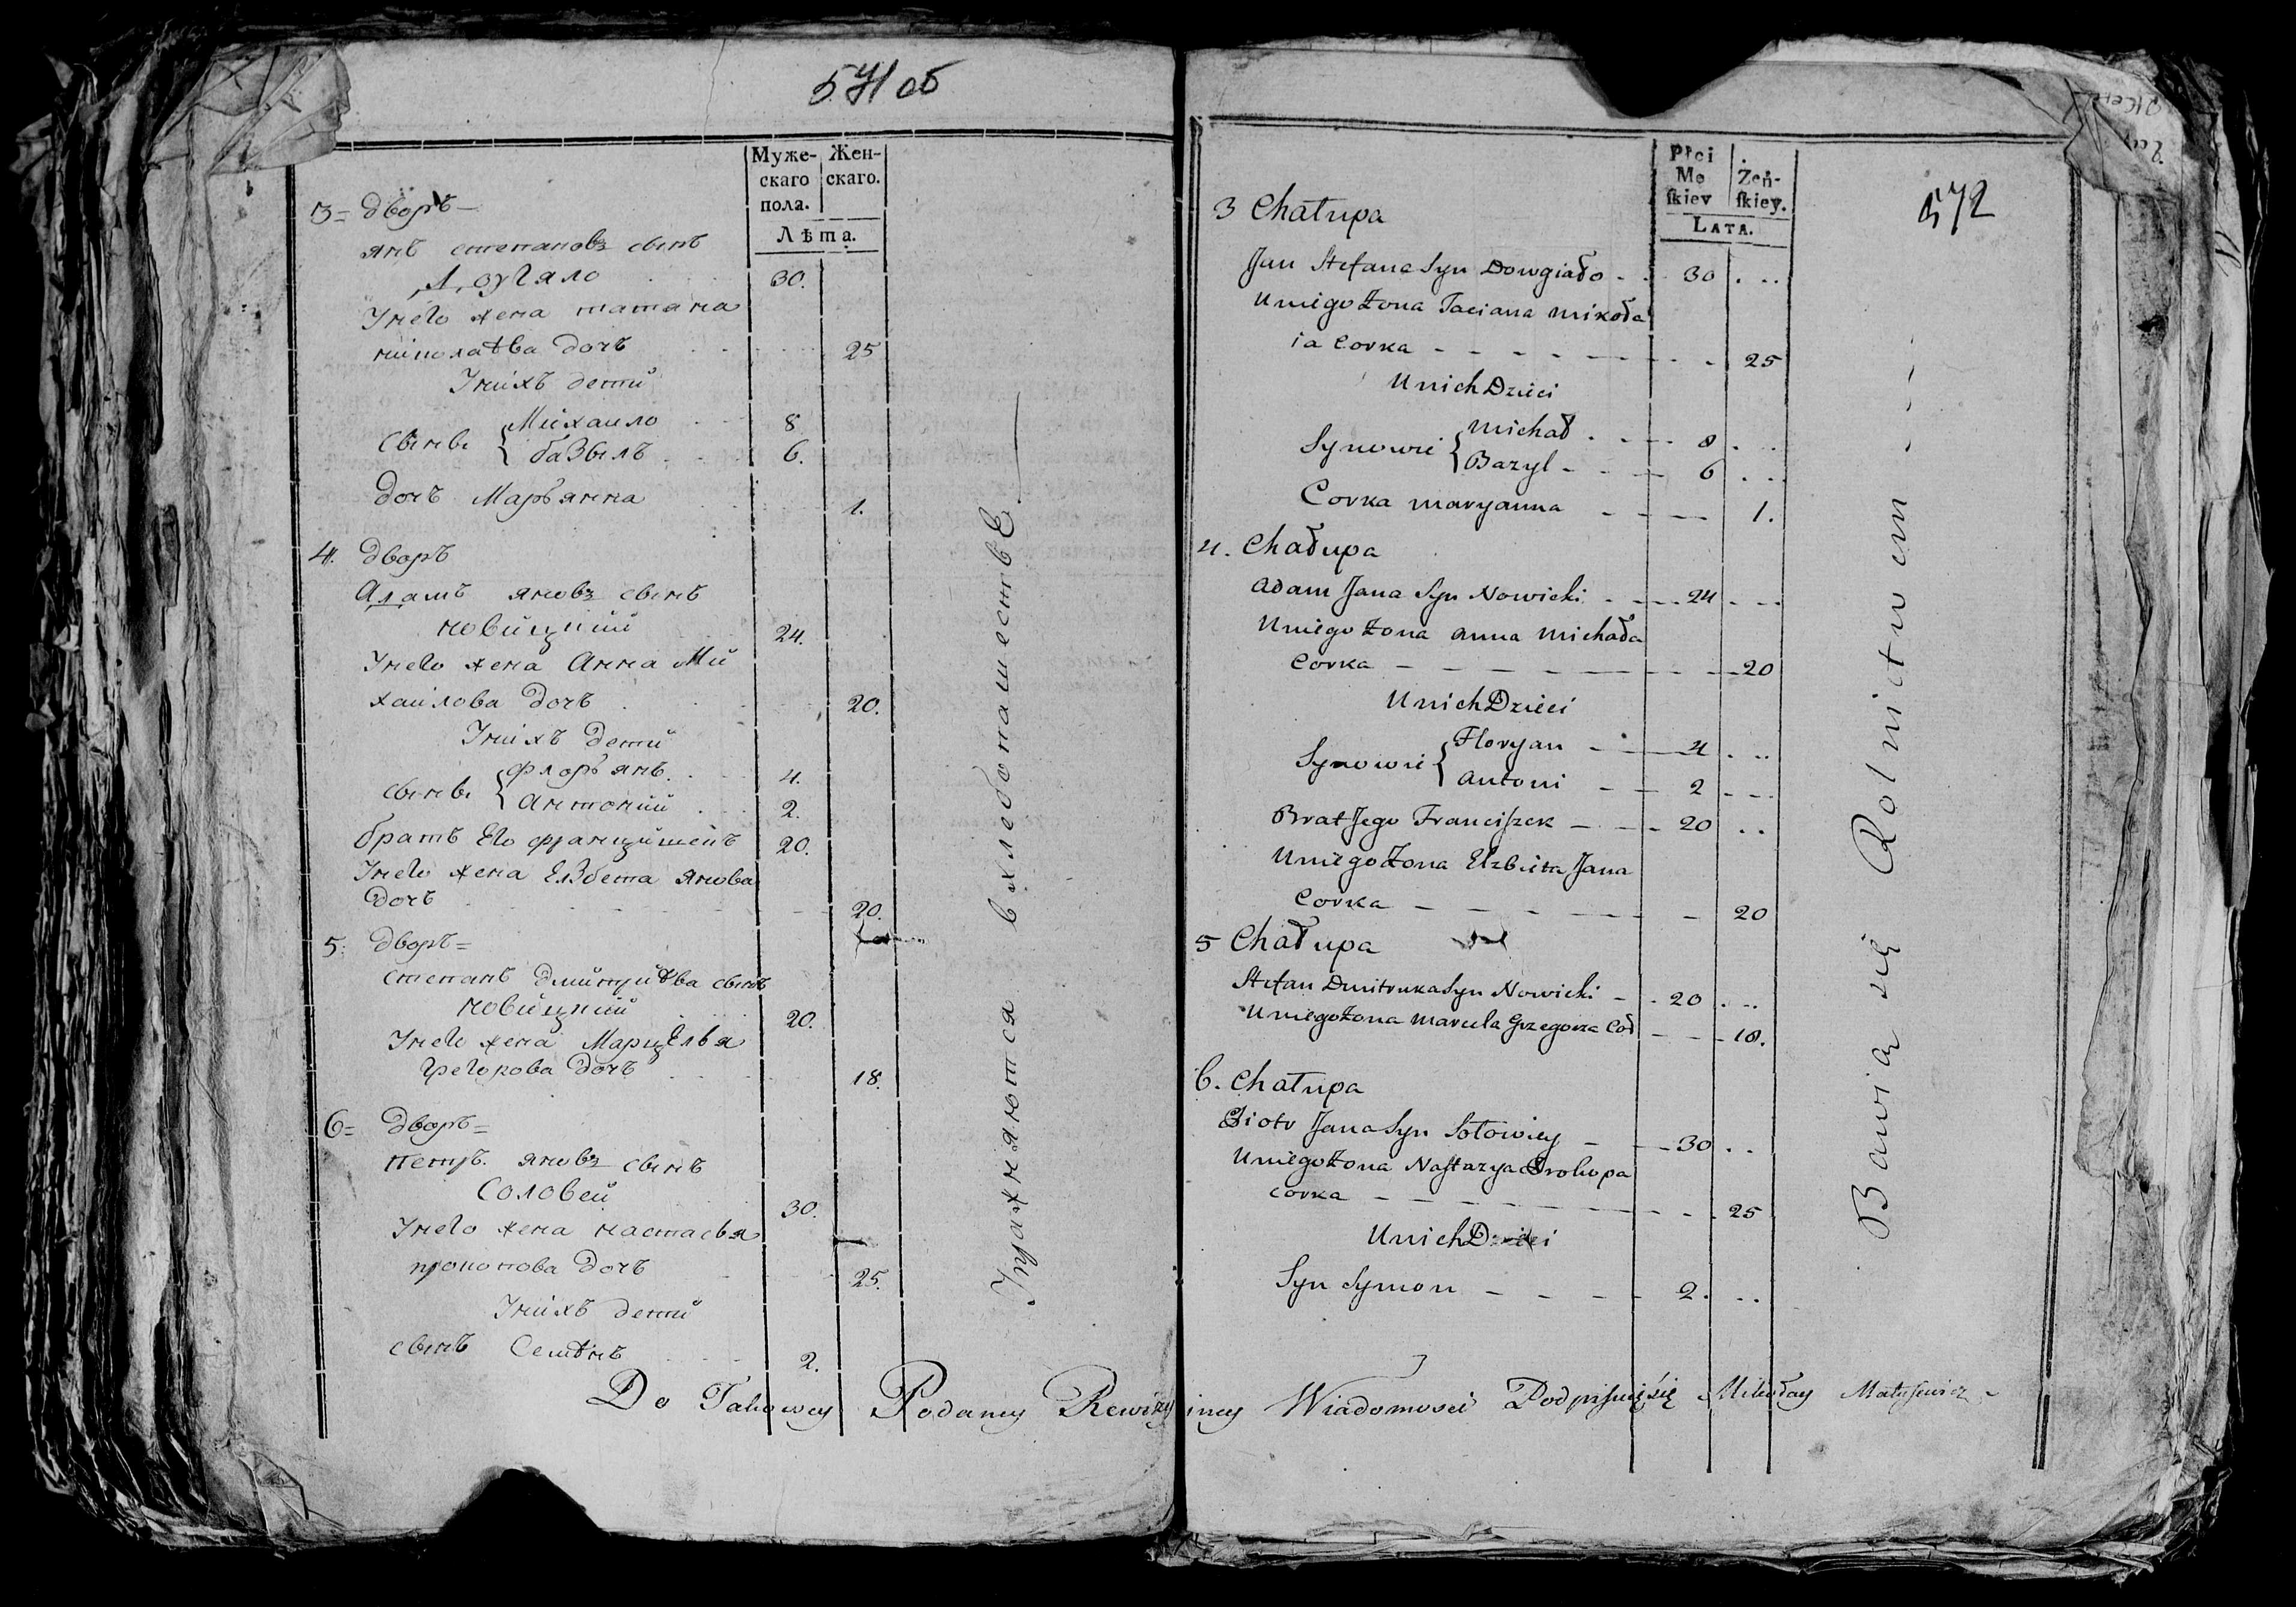 571 об
Муже- Жен-
скаго скаго.
пола.
Лѣта.
3= дворъ
янъ степановъ сынъ
Довгяло 30.
Унего жена татяна
миколаѣва дочь 25
Унихъ дети
сынвь { Михаило 8
базыль 6.
дочь Марьянна 1.
4. дворъ
Адамъ яновъ сынъ
новицкий 24.
Унего жена Анна Ми
хаилова дочь 20.
Унихъ дети
сынвь { флорьянъ 4.
Антоний 2.
братъ Его францишекъ 20.
Унего жена Елзбета Янова
дочь 20.
5. дворъ=
степанъ дмитриѣва сынъ
новицкий 20.
Унего жена Марцелья
Грегорова дочь 18.
6= дворъ=
петръ яновъ сынъ
Соловей 30.
Унего жена настасья
прокопова дочь 25.
Унихъ дети
сынъ Семѣнъ 2.
Упражняются в хлебопашестве
572
Płci
Mę Żeń-
skiey skiey.
LATA.
3 Chałupa
Jan Stefana Syn Dowgiało 30
Uniego Żona Taciana mikoła
ia Corka 25
Unich Dzieci
Synowie { michał 8
Bazyl 6
Corka maryanna 1.
4. Chałupa
Adam Jana Syn Nowicki 24
Uniego Żona anna michała
Corka 20
Unich Dzieci
Synowie { Floryan 4
antoni 2
Brat Jego Franciszek 20
Uniego Żona Elzbieta Jana
Corka 20
5 Chałupa
Stefan Dmitruka Syn Nowicki 20
Uniego Żona marcela Grzegorza Cor 18.
6. Chałupa
Piotr Jana Syn Sołowiey 30
Uniego Żona Nastazya Prokopa
corka 25
Unich Dzieci
Syn Symon 2.
Bawią się Rolnictwem
Do Takowey Podaney Rewizyiney Wiadomosci Podpisuię się Mikołay Matusewicz